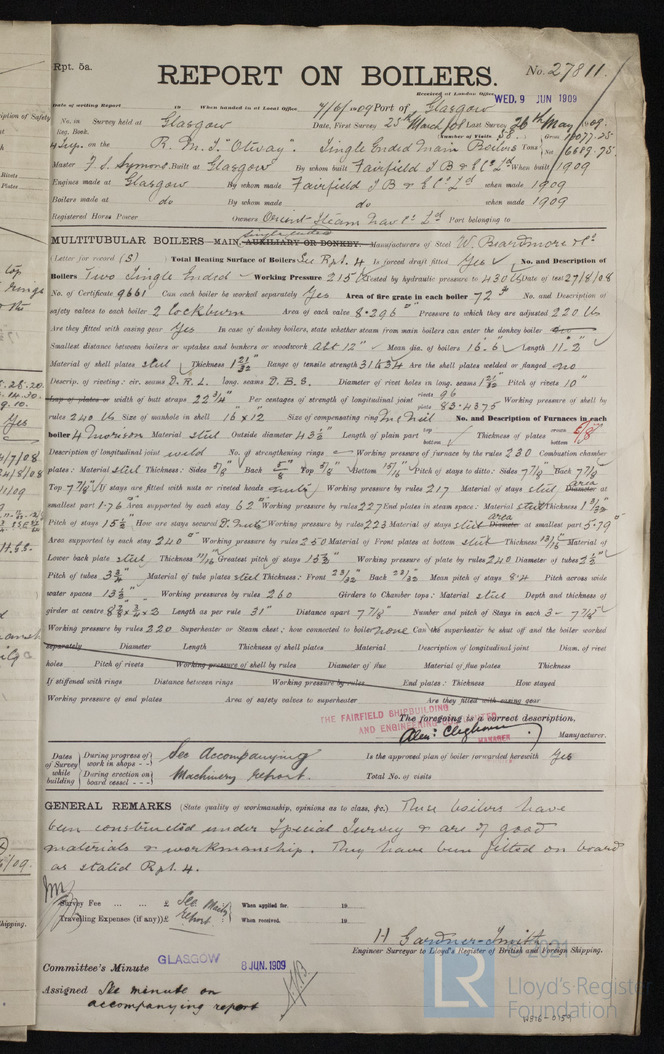 Rpt. 5a.
REPORT ON BOILERS.
No. 27811.
Received at London Office WED. 9 JUN 1909
Date of writing Report 19 When handed in at Local Office 7/6/1909 Port of Glasgow
No. in Survey held at Glasgow Date, First Survey 25th March/08 Last Survey 26th May 1909.
Reg. Book. Number of Visits 58
4 Sup. on the R.M.S. "Otway". Single Ended Main Boilers Tons Gross 12077.25 Net 6689.75
Master F. S. Symons Built at Glasgow By whom built Fairfield S B & E Co Ld When built 1909
Engines made at Glasgow By whom made Fairfield S B & E Co Ld when made 1909
Boilers made at do By whom made do when made 1909
Registered Horse Power Owners Orient Steam Nav Co Ld Port belonging to
MULTITUBULAR BOILERS MAIN, AUXILIARY OR DONKEY. Single ended Manufacturers of Steel W. Beardmore & Co
(Letter for record (S) Total Heating Surface of Boilers See Rpt. 4 Is forced draft fitted Yes No. and Description of
Boilers Two Single Ended Working Pressure 215 lb Tested by hydraulic pressure to 430 lb Date of test 27/8/08
No. of Certificate 9661 Can each boiler be worked separately Yes Area of fire grate in each boiler 72 No. and Description of
safety valves to each boiler 2 Cockburn Area of each valve 8.296" Pressure to which they are adjusted 220 lb
Are they fitted with easing gear Yes In case of donkey boilers, state whether steam from main boilers can enter the donkey boiler
Smallest distance between boilers or uptakes and bunkers or woodwork abt 12" Mean dia. of boilers 16'.6" Length 11'-2"
Material of shell plates steel Thickness 1 21/32" Range of tensile strength 31 & 34 Are the shell plates welded or flanged no
Descrip. of riveting: cir. seams D.R.L. long. seams D.B.S. Diameter of rivet holes in long. seams 1 21/32" Pitch of rivets 10"
Lap of plates or width of butt straps 22 3/4" Per centages of strength of longitudinal joint rivets 96 plate 83.4375 Working pressure of shell by
rules 240 lb Size of manhole in shell 16" x 12" Size of compensating ring McNeil No. and Description of Furnaces in each
boiler 4 Morison Material steel Outside diameter 43 1/2" Length of plain part top bottom Thickness of plates crown bottom 5/8"
Description of longitudinal joint weld No. of strengthening rings Working pressure of furnace by the rules 230 Combustion chamber
plates: Material steel Thickness: Sides 5/8" Back 5/8" Top 5/8" Bottom 15/16" Pitch of stays to ditto: Sides 7 7/8" Back 7 7/8"
Top 7 7/8" If stays are fitted with nuts or riveted heads nuts Working pressure by rules 217 Material of stays steel area Diameter at
smallest part 1.76 Area supported by each stay 62" Working pressure by rules 227 End plates in steam space: Material steel Thickness
Pitch of stays 15 1/2 How are stays secured D. Nuts Working pressure by rules 223 Material of stays steel area Diameter at smallest part 5.79"
Area supported by each stay 240 Working pressure by rules 250 Material of Front plates at bottom steel Thickness 13/16" Material of
Lower back plate steel Thickness 11/16" Greatest pitch of stays 13 1/2" Working pressure of plate by rules 240 Diameter of tubes 2 1/2"
Pitch of tubes 3 3/4" Material of tube plates steel Thickness: Front 23/32" Back 23/32" Mean pitch of stays 8.4 Pitch across wide
water spaces 13 1/2" Working pressures by rules 260 Girders to Chamber tops: Material steel Depth and thickness of
girder at centre 8 3/8 x 3/4 x 2 Length as per rule 31" Distance apart 7 7/8" Number and pitch of Stays in each 3 - 7 7/8"
Working pressure by rules 220 Superheater or Steam chest; how connected to boiler none Can the superheater be shut off and the boiler worked
separately Diameter Length Thickness of shell plates Material Description of longitudinal joint Diam. of rivet
holes Pitch of rivets Working pressure of shell by rules Diameter of flue Material of flue plates Thickness
If stiffened with rings Distance between rings Working pressure by rules End plates: Thickness How stayed
Working pressure of end plates Area of safety valves to superheater Are they fitted with easing gear
THE FAIRFIELD SHIPBUILDING
AND ENGINEERING CO. LIMITED
The foregoing is a correct description.
Alexr Cleghorn Manufacturer.
MANAGER
Dates of Survey while building During progress of work in shops - - See Accompanying Is the approved plan of boiler forwarded herewith Yes
During erection on board vessel - - - Machinery report. Total No. of visits
GENERAL REMARKS (State quality of workmanship, opinions as to class, &c.) These boilers have
been constructed under Special Survey & are of good
materials & workmanship. They have been fitted on board
as stated Rpt. 4.
Survey Fee ... ... £ See Machy When applied for, 19
Travelling Expenses (if any) £ report When received, 19
H Gardner-Smith
Engineer Surveyor to Lloyd's Register of British and Foreign Shipping.
Committee's Minute GLASGOW 8 JUN. 1909
Assigned See minute on
accompanying report
© 2021
LR
Lloyd's Register
Foundation
W316-0159